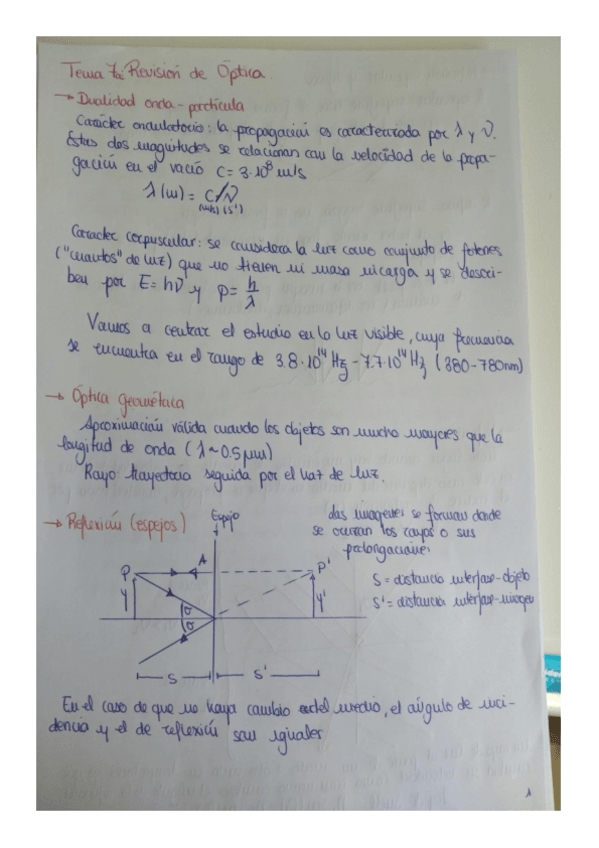 Tema 7a: Revisión de Óptica.
→ Dualidad onda-partícula
Carácter ondulatorio: la propagación es caracterizada por λ y ν.
Estas dos magnitudes se relacionan con la velocidad de la propa-
gación en el vacío c = 3·10⁸ m/s
λ (m) = C/ν
(m/s) (s⁻¹)
Caracter corpuscular: se considera la luz como conjunto de fotones
("cuantos" de luz) que no tienen ni masa ni carga y se descri-
ben por E = hν y p = h/λ
Vamos a centrar el estudio en la luz visible, cuya frecuencia
se encuentra en el rango de 3.8·10¹⁴ Hz - 7.7·10¹⁴ Hz (380-780nm)
→ Óptica geométrica
Aproximación válida cuando los objetos son mucho mayores que la
longitud de onda (λ ~ 0.5 μm)
Rayo: trayectoria seguida por el haz de luz.
→ Reflexión (espejos)
Espejo
Las imágenes se forman donde
se cruzan los rayos o sus
prolongaciones
S = distancia interfase-objeto
S' = distancia interfase-imagen
P
A
P'
y
σ
σ
y'
S
S'
En el caso de que no haya cambio en el medio, el ángulo de inci-
dencia y el de reflexión son iguales
1